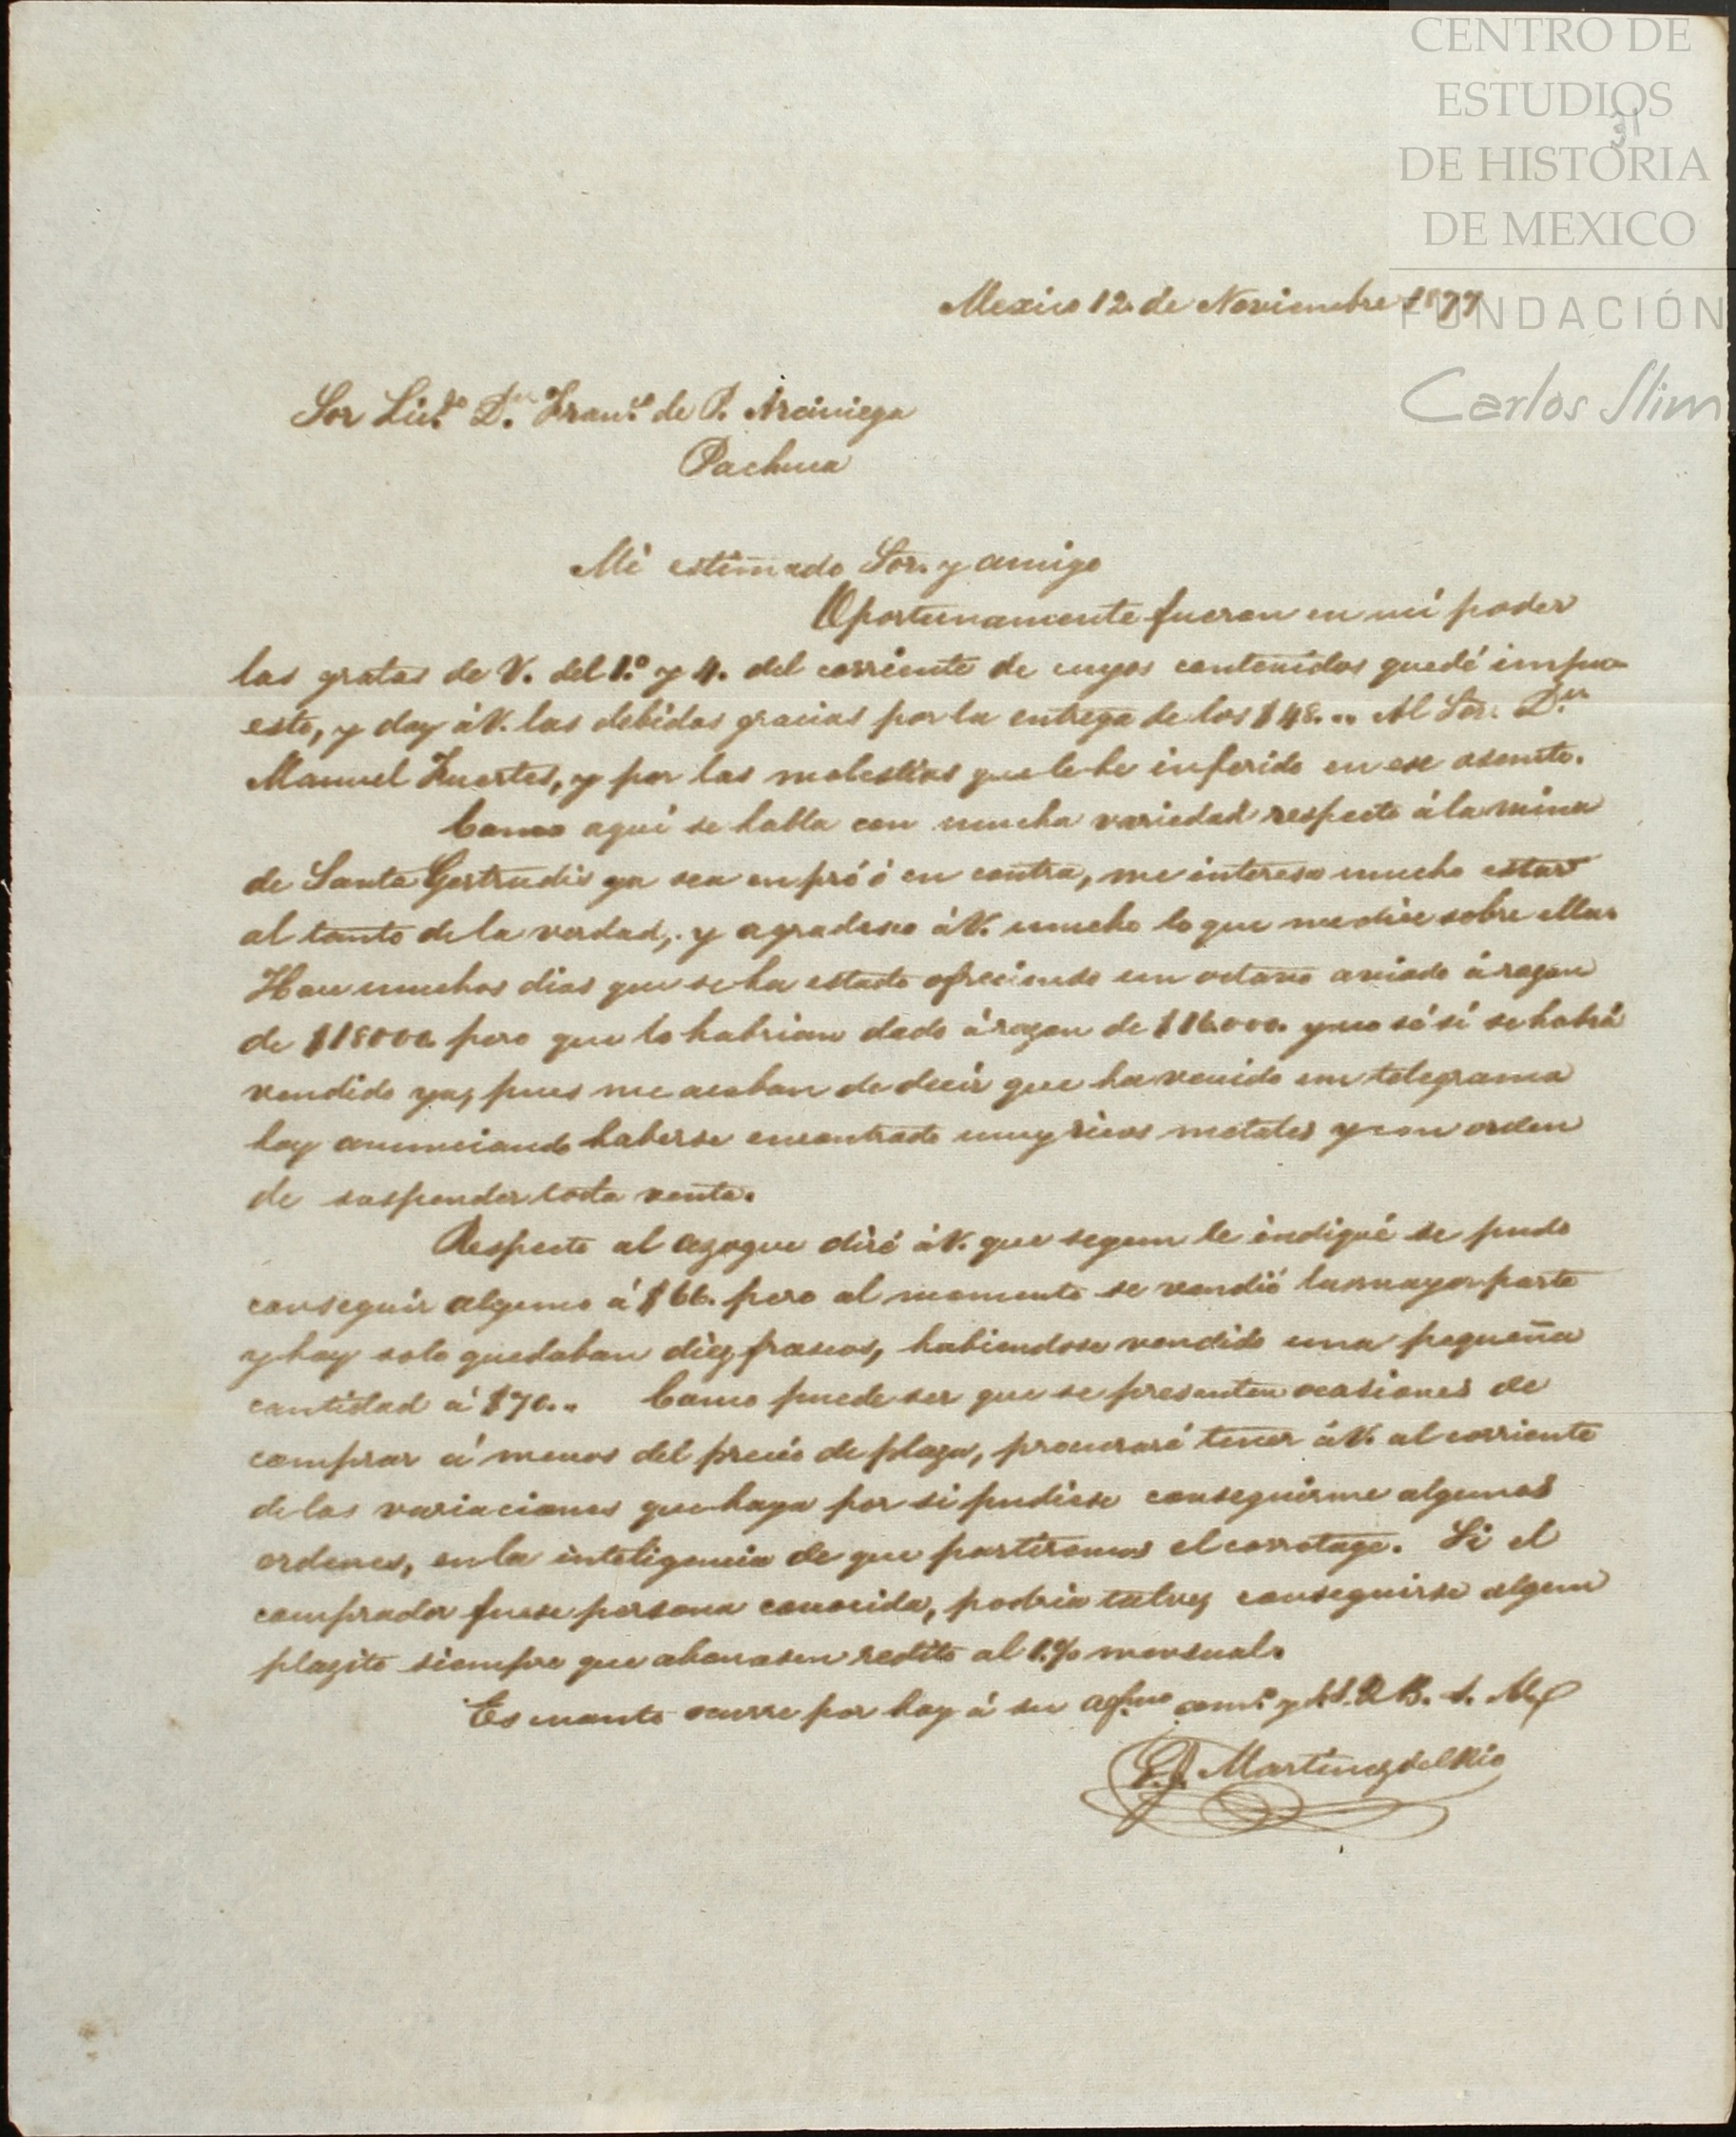 CENTRO DE
ESTUDIOS
DE HISTORIA
DE MEXICO
FUNDACIÓN
Carlos Slim
31
Mexico 12. de Noviembre 1877
Sor Licdo. Dn. Franco. de P. Arciniega
Pachuca
Mi estimado Sor. y amigo
Oportunamente fueron en mi poder
las gratas de V. del 1.º y 4. del corriente de cuyos contenidos quedé impu-
esto, y doy á V. las debidas gracias por la entrega de los $48... Al Sor. Dn.
Manuel Fuertes, y por las molestias que le he inferido en ese asunto.
Como aquí se habla con mucha variedad respecto á la mina
de Santa Gertrudis ya sea en pró ó en contra, me interesa mucho estar
al tanto de la verdad, y agradesco á V. mucho lo que me dice sobre ella.
Hace muchos dias que se ha estado ofreciendo un octavo aviado á razon
de $18000. pero que lo habrian dado á razon de $16.000. y no sé si se habrá
vendido ya, pues me acaban de decir que ha venido un telegrama
hoy anunciando haberse encontrado muy ricos metales y con orden
de suspender toda venta.
Respecto al azogue diré á V. que segun le indiqué se pudo
conseguir alguno á $66. pero al momento se vendió la mayor parte
y hoy solo quedaban diez frascos, habiendose vendido una pequeña
cantidad á $70... Como puede ser que se presenten ocasiones de
comprar á menos del precio de plaza, procuraré tener á V. al corriente
de las variaciones que haya por si pudiese conseguirme algunas
ordenes, en la inteligencia de que partiremos el corretage. Si el
comprador fuese persona conocida, podria talvez conseguirse algun
plazito siempre que abonasen redito al 1.% mensual.
Es cuanto ocurre por hoy á su afmo. amo. y S.S.Q B. S. M.
Martinez del Rio